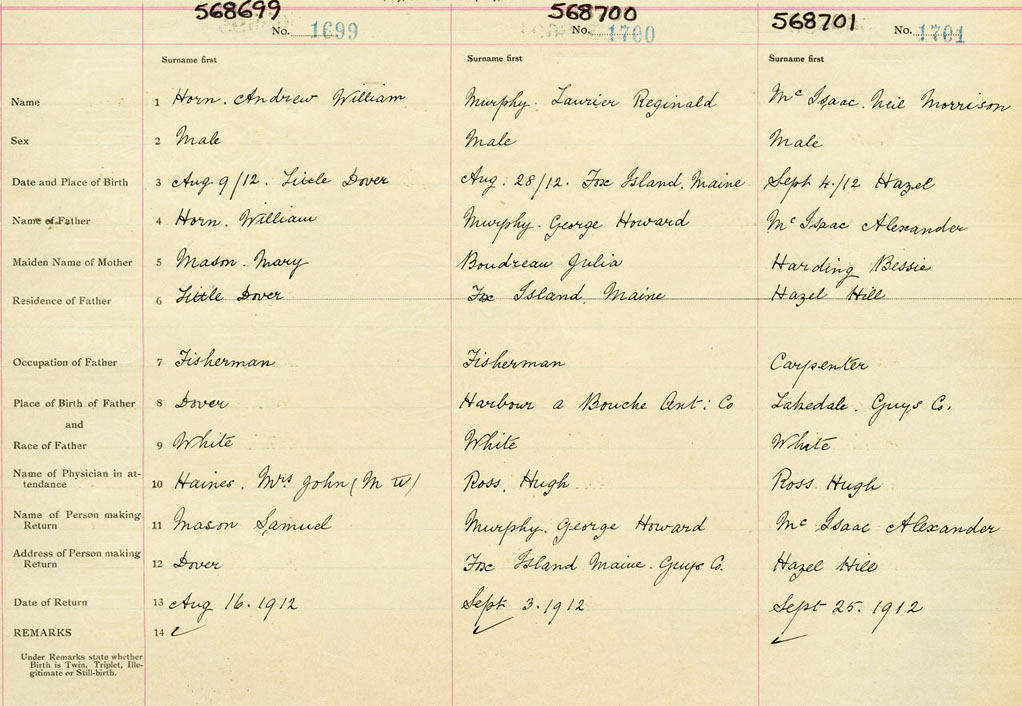 568699 568700 568701
No. 1699 No. 1700 No. 1701
Surname first Surname first Surname first
Name 1 Horn. Andrew William Murphy. Laurier Reginald Mc Isaac. Neil Morrison
Sex 2 Male Male Male
Date and Place of Birth 3 Aug 9/12. Little Dover Aug. 28/12. Fox Island. Maine Sept 4./12 Hazel
Name of Father 4 Horn. William Murphy. George Howard Mc Isaac Alexander
Maiden Name of Mother 5 Mason. Mary Boudreau Julia Harding Bessie
Residence of Father 6 Little Dover Fox Island. Maine Hazel Hill
Occupation of Father 7 Fisherman Fisherman Carpenter
Place of Birth of Father 8 Dover Harbour a Bouche Ant: Co Lakedale. Guys Co.
and
Race of Father 9 White White White
Name of Physician in at-
tendance 10 Haines. Mrs John (M W) Ross. Hugh Ross Hugh
Name of Person making
Return 11 Mason Samuel Murphy. George Howard Mc Isaac Alexander
Address of Person making
Return 12 Dover Fox Island Maine. Guys Co. Hazel Hill
Date of Return 13 Aug 16. 1912 Sept 3. 1912 Sept 25. 1912
REMARKS 14 ✓ ✓ ✓
Under Remarks state whether
Birth is Twin, Triplet, Ille-
gitimate or Still-birth.